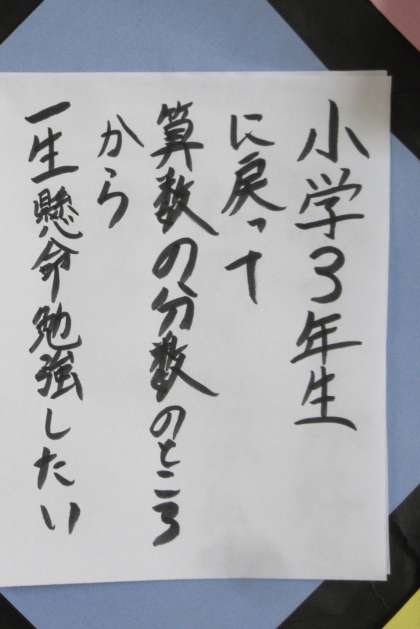 小学3年生
に戻って
算数の分数のところ
から
一生懸命勉強したい